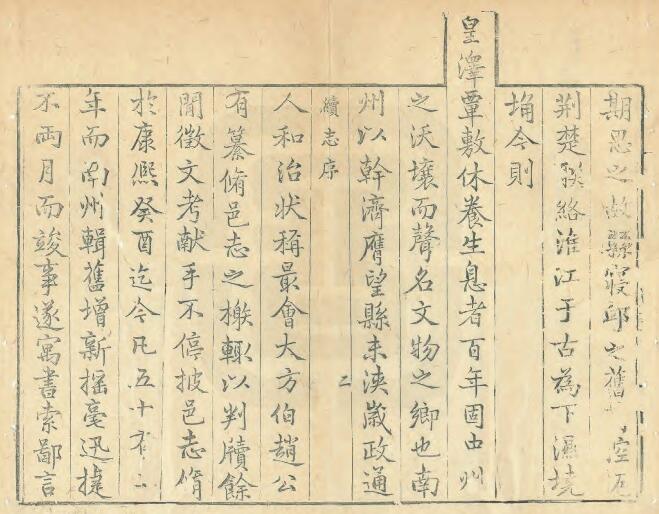 期思之故縣寢邱之舊
荆楚聯絡淮江于古為下濕境
埆今則
皇澤覃敷休養生息者百年固中州
之沃壤而聲名文物之鄉也南
州以幹濟膺望縣未浹歲政通
續志序 二
人和治状稱最會大方伯趙公
有纂脩邑志之檄輒以判牘餘
閒徵文考献手不停披邑志脩
於康熙癸酉迄今凡五十有
年而南州輯舊增新搖毫迅捷
不兩月而竣事遂寓書索鄙言